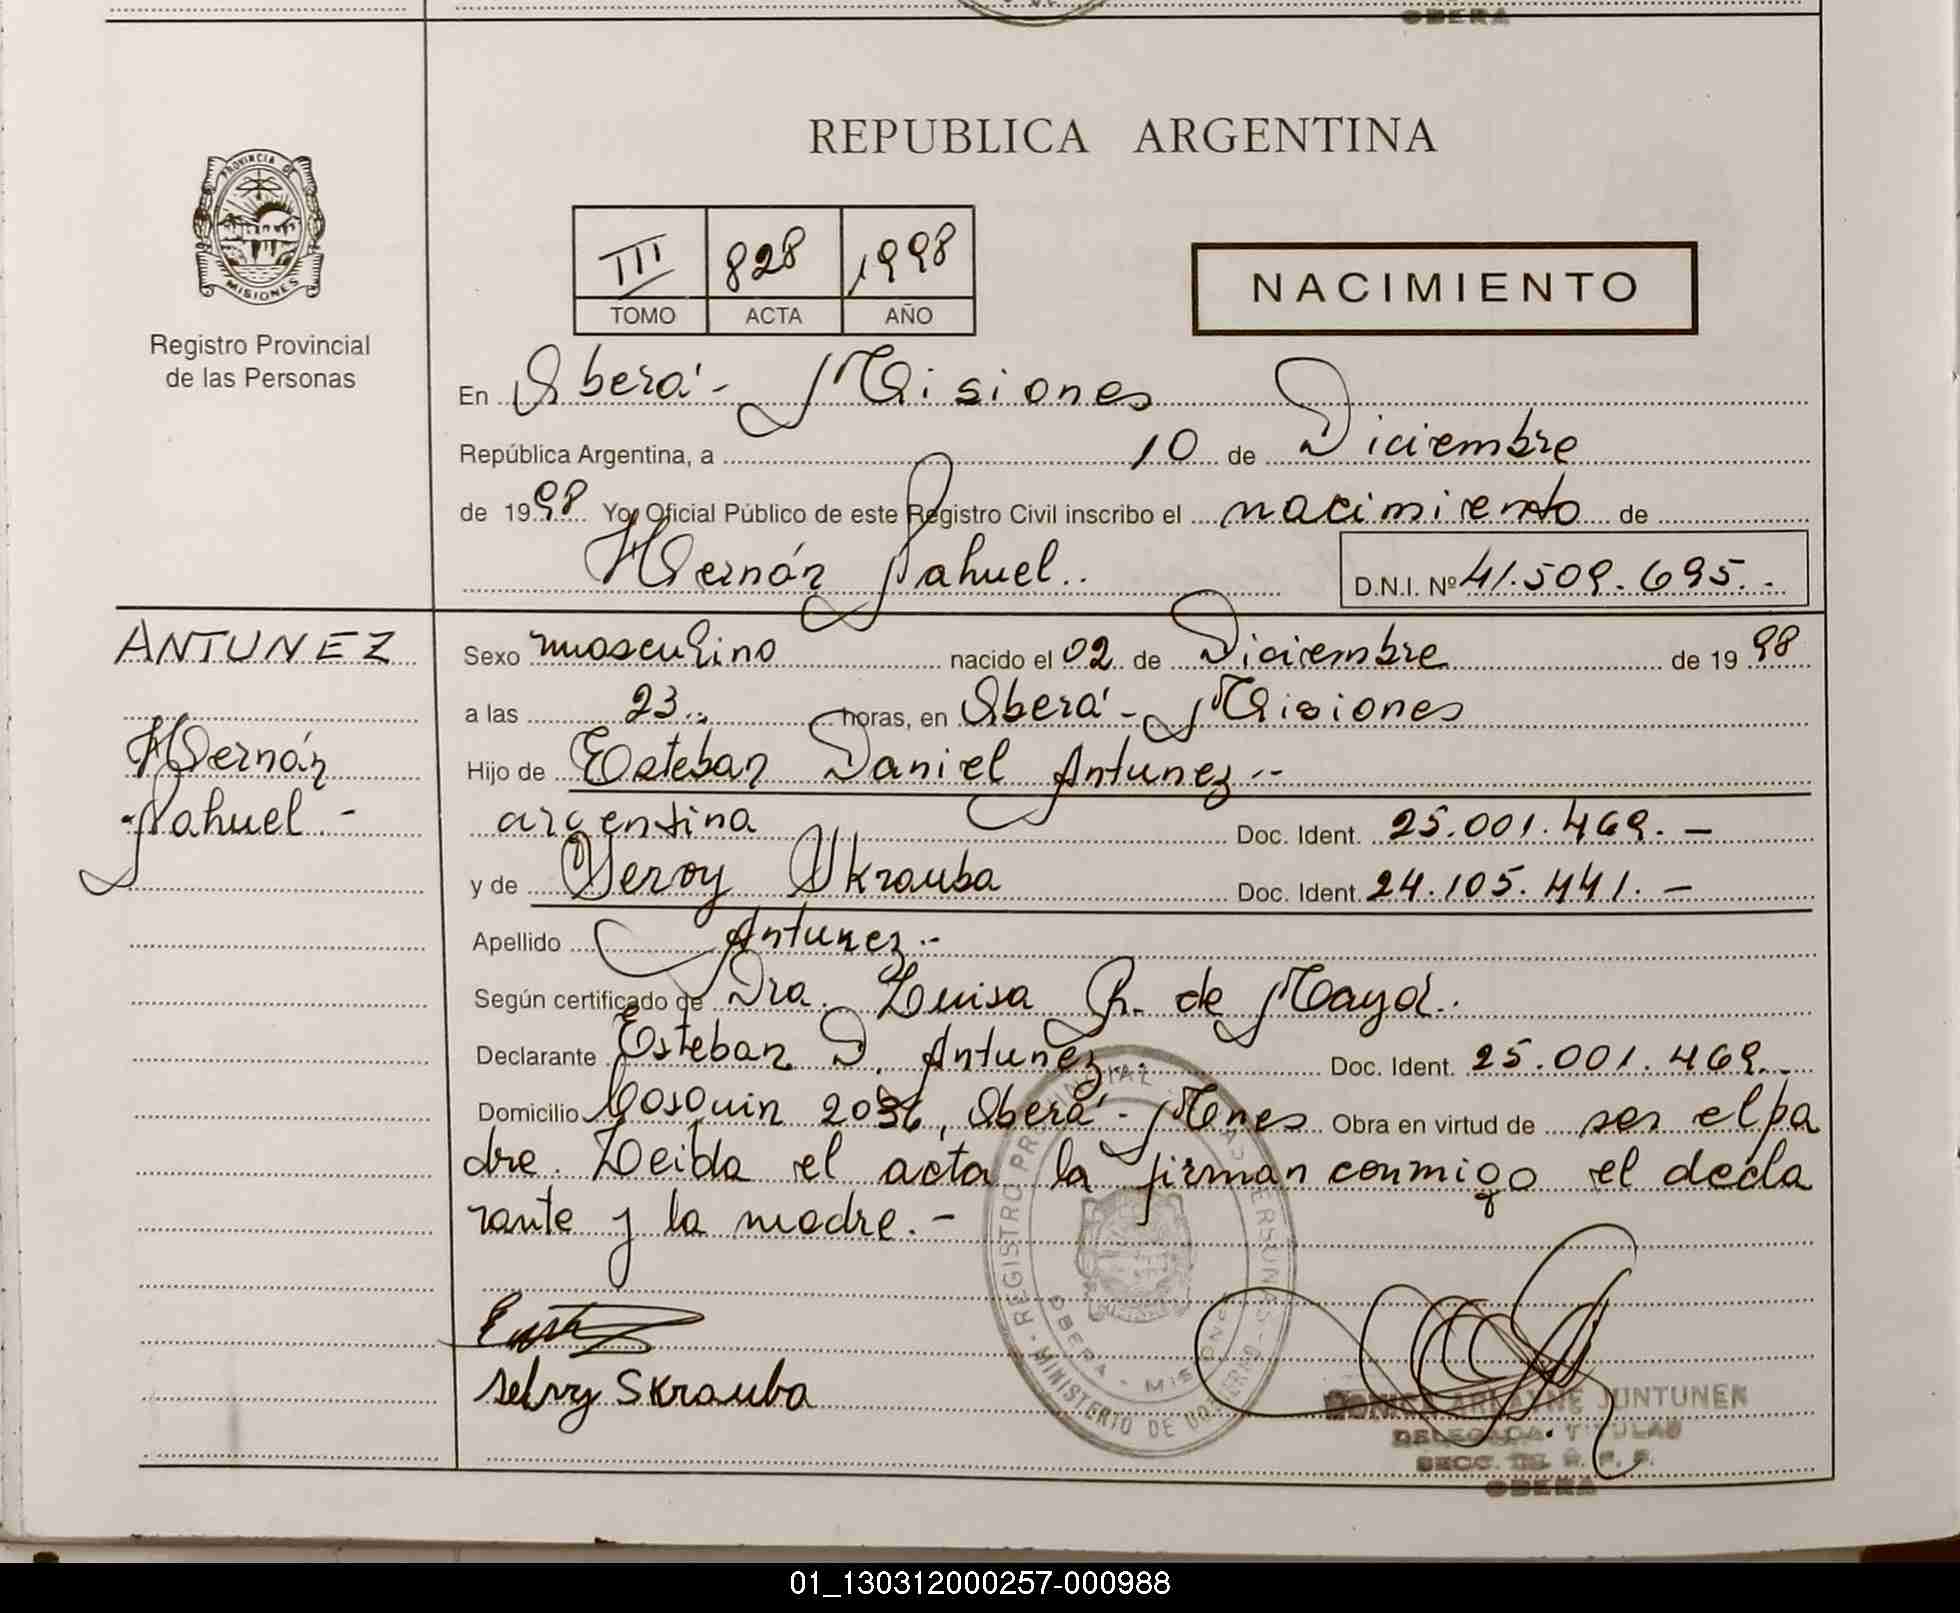 OBERA
PROVINCIA DE
MISIONES
Registro Provincial
de las Personas
REPUBLICA ARGENTINA
III 828 1998
TOMO ACTA AÑO
NACIMIENTO
En Oberá - Misiones
República Argentina, a 10 de Diciembre
de 1998 Yo, Oficial Público de este Registro Civil inscribo el nacimiento de
Hernán Nahuel.. D.N.I. Nº 41.509.695.-
ANTUNEZ
Hernán
Nahuel -
Sexo masculino nacido el 02 de Diciembre de 1998
a las 23.. horas, en Oberá - Misiones
Hijo de Esteban Daniel Antunez.-
argentina Doc. Ident. 25.001.469.-
y de Skrauba Doc. Ident. 24.105.441.-
Apellido Antunez.-
Según certificado de Dra. Luisa R. de Mayol.
Declarante Esteban D. Antunez.- Doc. Ident. 25.001.469.-
Domicilio Cosquin 2036, Oberá - Mnes Obra en virtud de ser el pa
dre. Leída el acta la firman conmigo el decla
rante y la madre.-
Skrauba
REGISTRO PROVINCIAL DE LAS PERSONAS - MINISTERIO DE GOBIERNO -
OBERA - MISIONES
JUNTUNEN
DELEGADA TITULAR
SECC. DEL R. P. P.
OBERA
01_130312000257-000988